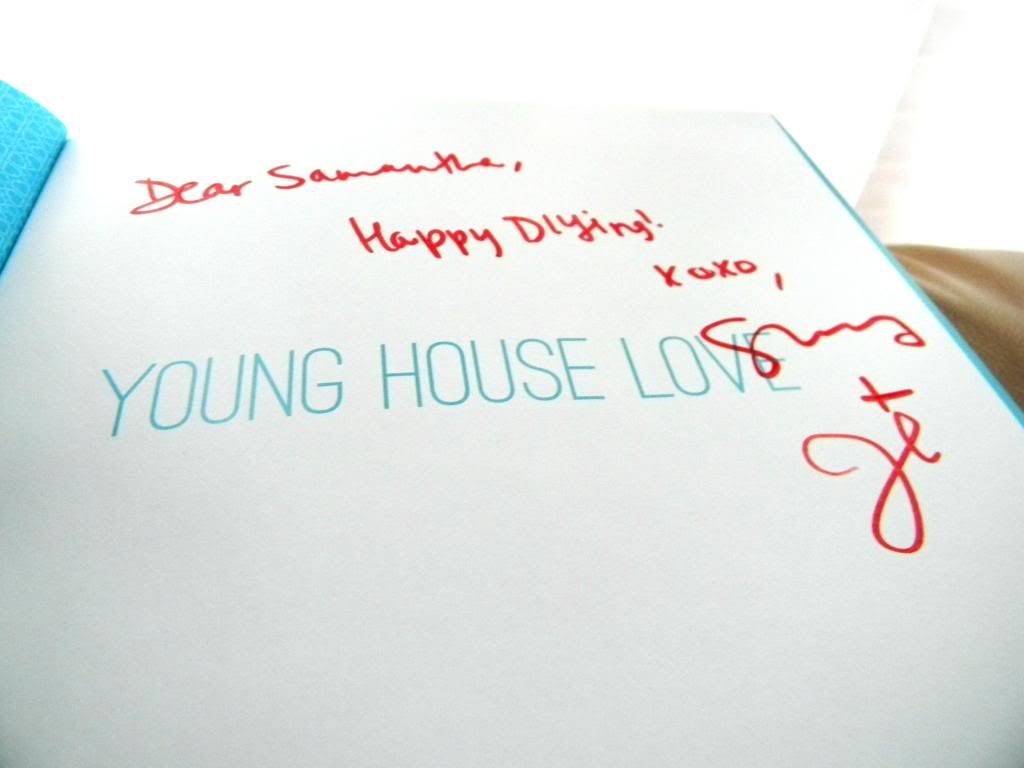 Dear Samantha,
Happy DIYing!
xoxo,
YOUNG HOUSE LOVE
Sherry
+